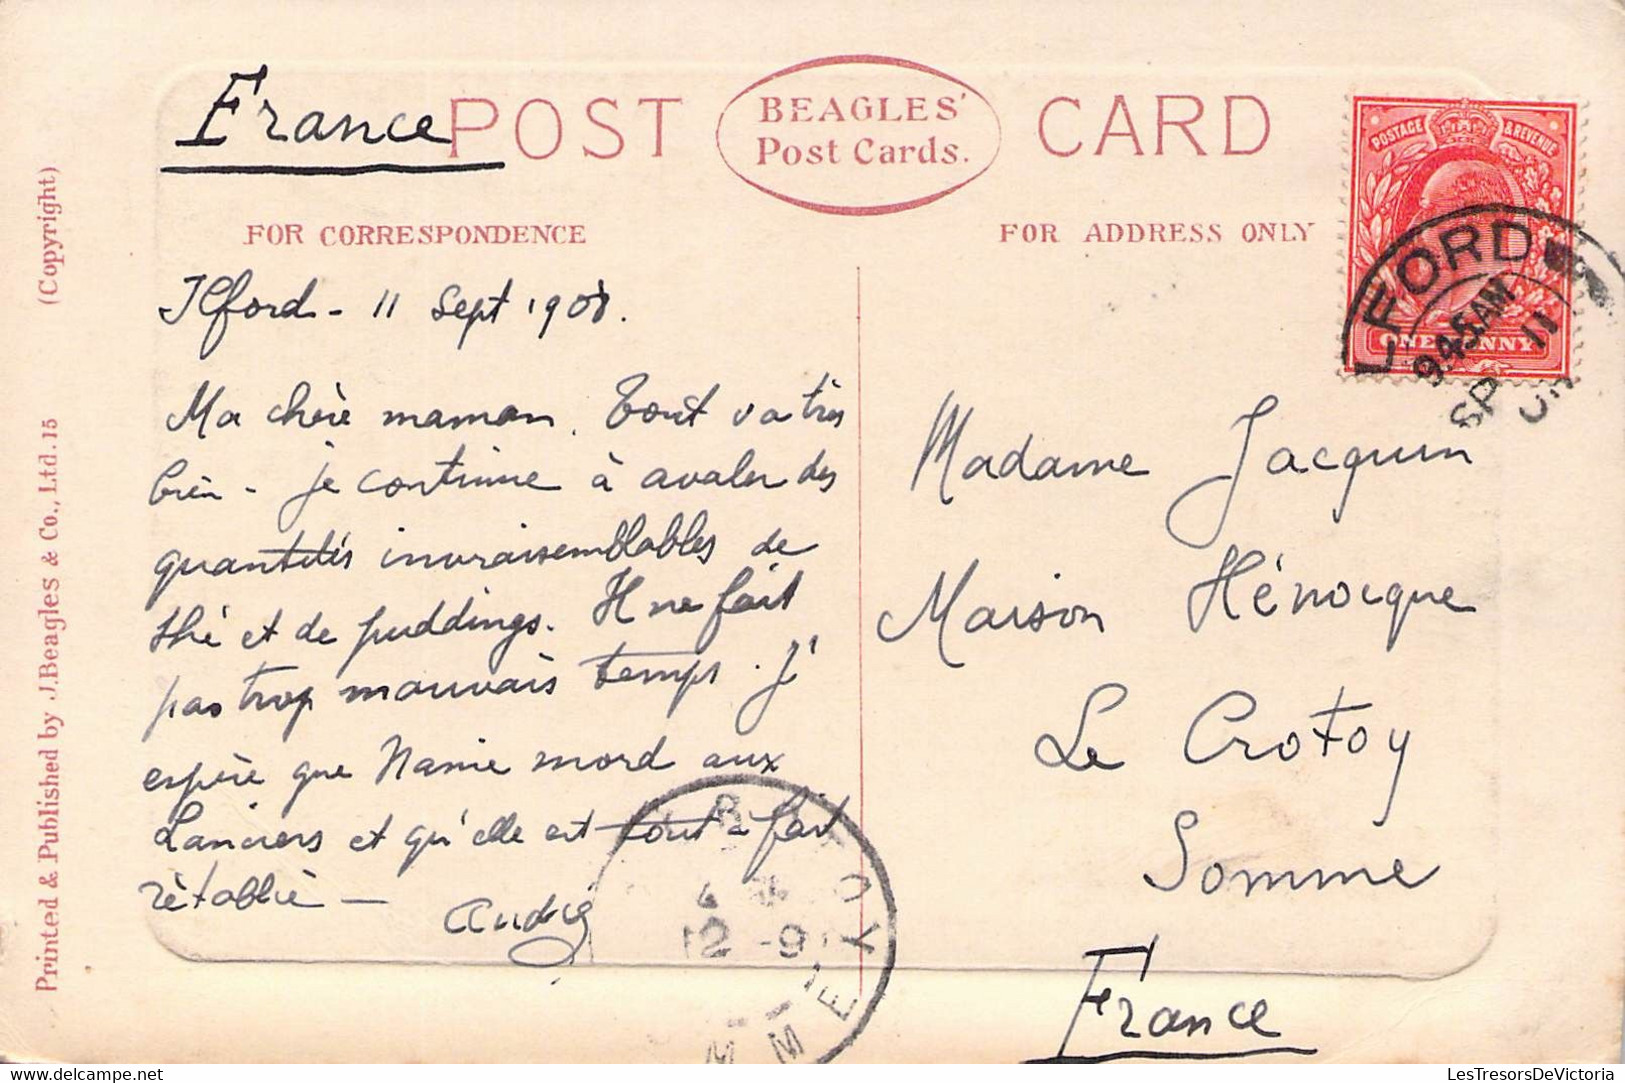 France
POST CARD
BEAGLES'
Post Cards.
FOR CORRESPONDENCE
FOR ADDRESS ONLY
Printed & Published by J.Beagles & Co., Ltd. 15 (Copyright)
POSTAGE & REVENUE
ONE PENNY
ILFORD
9.45 AM
SP 11
Ilford - 11 Sept 1908.
Ma chère maman. Tout va très
bien - je continue à avaler des
quantités invraisemblables de
thé et de puddings. Il ne fait
pas trop mauvais temps. J'
espère que Nanie mord aux
Lanciers et qu'elle est tout à fait
rétablie -
Madame Jacquin
Maison Hénocque
Le Crotoy
Somme
France
12 -9
LesTresorsDeVictoria
delcampe.net